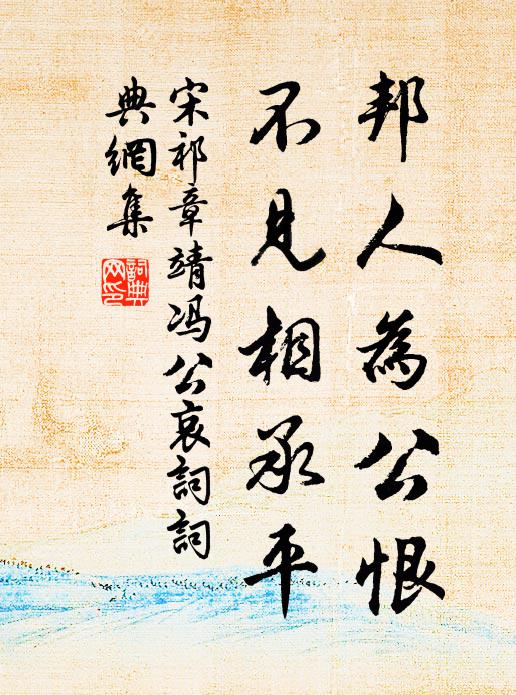 邦人為公恨
不見相承平
宋祁章靖馮公哀詞詞
典網集
詞典
网印